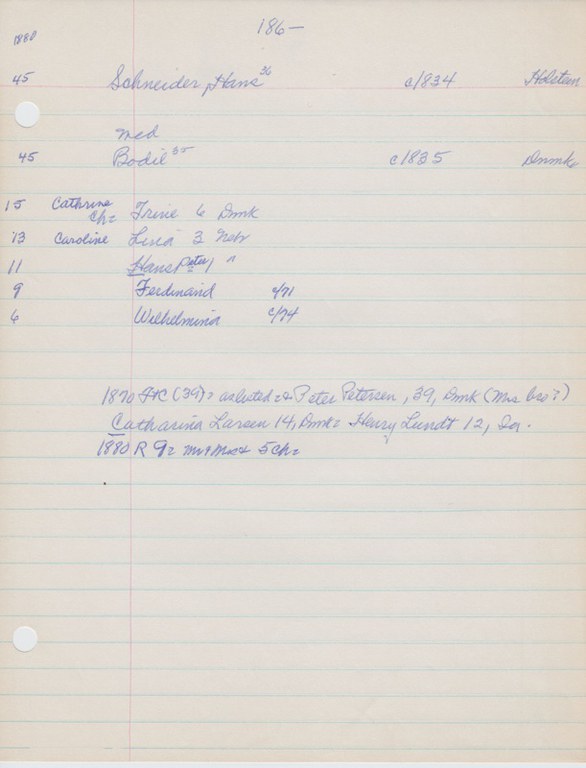 186-
1880
45 Schneider, Hans 36 c/1834 Holstein
med
45 Bodil 35 c/1835 Dnmk
15 Cathrine Ch= Trine 6 Dmk
13 Caroline Lina 3 Nebr
11 Hans Peter 1 "
9 Ferdinand c/71
6 Wilhelmina c/74
1870 FtC (39)= as listed = & Peter Petersen, 39, Dmk (Mrs bro?)
Catharina Larsen 14, Dmk= Henry Lundt 12, Ia.
1880 R 9= Mr & Mrs & 5 Ch=